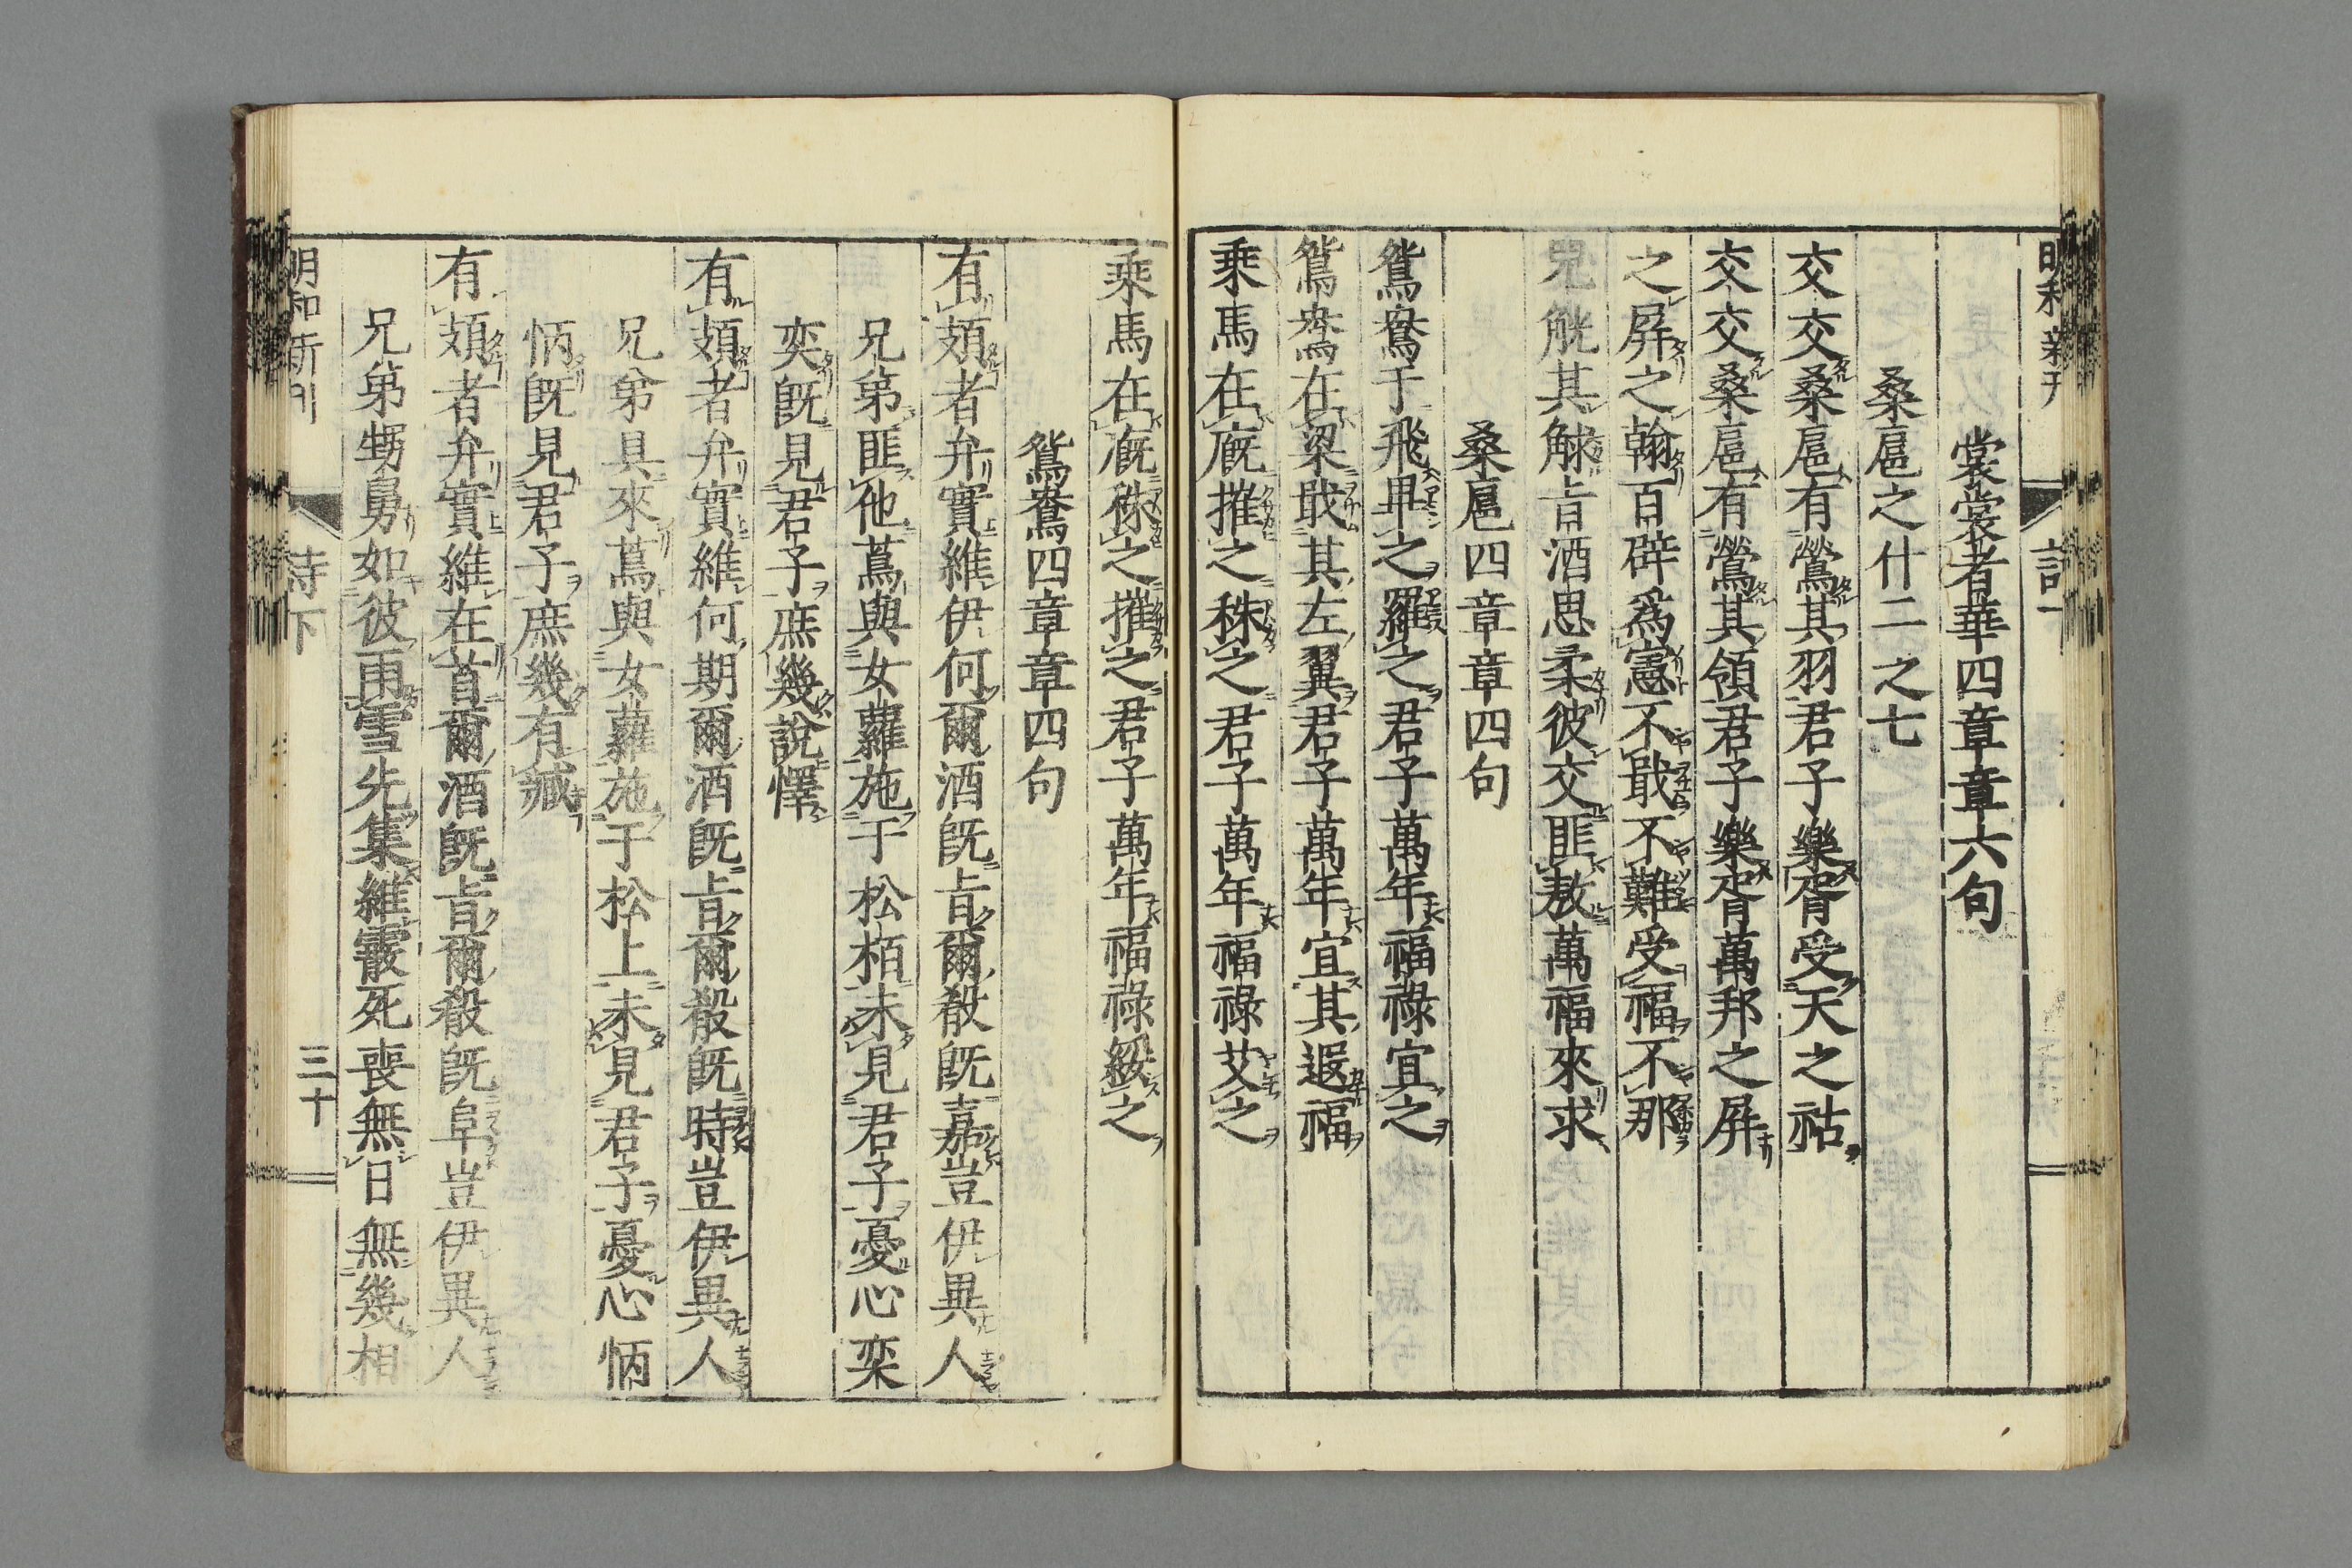 裳裳者華四章章六句
桑扈之什二之七
交交桑扈有鶯其羽君子樂胥受天之祜
交交桑扈有鶯其領君子樂胥萬邦之屏
之屏之翰百辟爲憲不戢不難受福不那
兕觥其觩旨酒思柔彼交匪敖萬福來求
桑扈四章章四句
鴛鴦于飛畢之羅之君子萬年福祿宜之
鴛鴦在梁戢其左翼君子萬年宜其遐福
乘馬在廐摧之秣之君子萬年福祿艾之
乘馬在廐秣之摧之君子萬年福祿綏之
鴛鴦四章章四句
有頍者弁實維伊何爾酒既旨爾殽既嘉豈伊異人
兄弟匪他蔦與女蘿施于松栢未見君子憂心奕
奕既見君子庶幾說懌
有頍者弁實維何期爾酒既旨爾殽既時豈伊異人
兄弟具來蔦與女蘿施于松上未見君子憂心怲
怲既見君子庶幾有臧
有頍者弁實維在首爾酒既旨爾殽既阜豈伊異人
兄弟甥舅如彼雨雪先集維霰死喪無日無幾相
明和新刊 詩下 三十